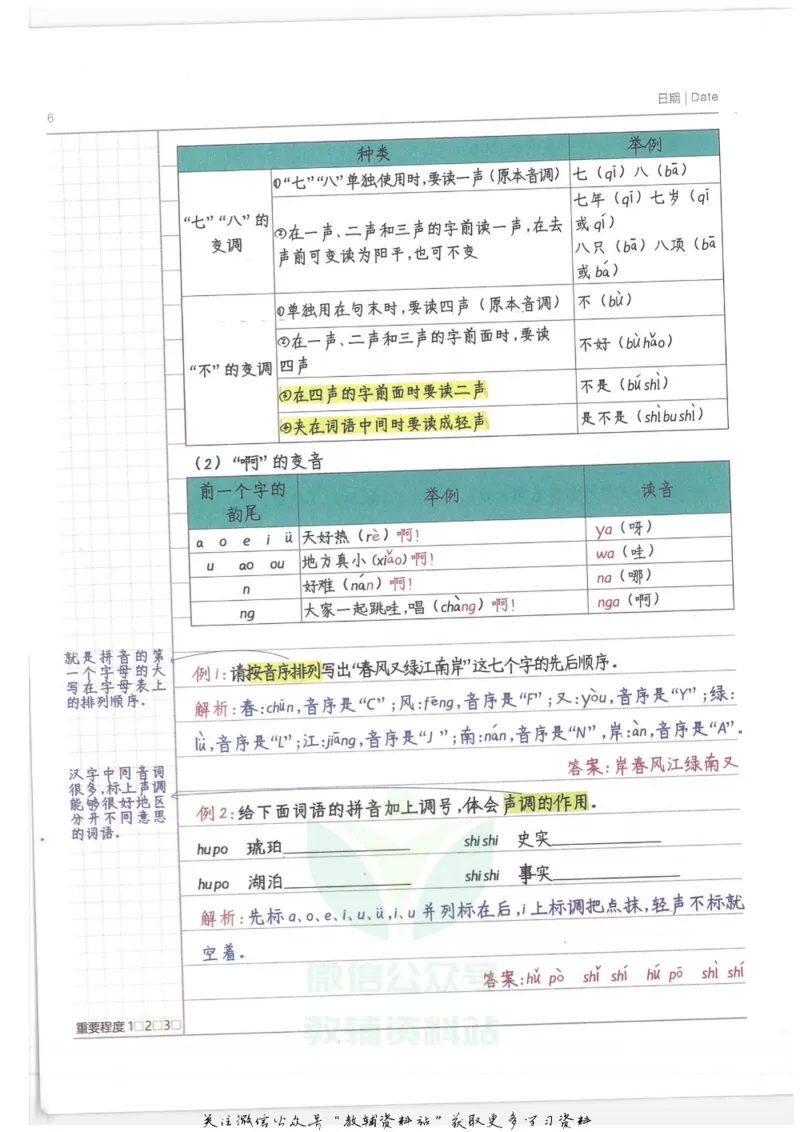 日期 | Date
6
种类 举例
“七”“八”的变调
①“七”“八”单独使用时,要读一声(原本音调) 七(qī)八(bā)
②在一声、二声和三声的字前读一声,在去
声前可变读为阳平,也可不变
七年(qī)七岁(qī
或qí)
八只(bā)八项(bā
或bá)
“不”的变调
①单独用在句末时,要读四声(原本音调) 不(bù)
②在一声、二声和三声的字前面时,要读
四声
不好(bùhǎo)
③在四声的字前面时要读二声 不是(búshì)
④夹在词语中间时要读成轻声 是不是(shìbushì)
(2)“啊”的变音
前一个字的韵尾 举例 读音
a o e i ü 天好热(rè)啊! ya(呀)
u ao ou 地方真小(xiǎo)啊! wa(哇)
n 好难(nán)啊! na(哪)
ng 大家一起跳哇,唱(chàng)啊! nga(啊)
就是拼音的第
一个字母的大
写在字母表上
的排列顺序.
例1:请按音序排列写出“春风又绿江南岸”这七个字的先后顺序.
解析:春:chūn,音序是“C”;风:fēng,音序是“F”;又:yòu,音序是“Y”;绿:
lǜ,音序是“L”;江:jiāng,音序是“J”;南:nán,音序是“N”,岸:àn,音序是“A”.
答案:岸春风江绿南又
汉字中同音词
很多,标上声调
能够很好地区
分开不同意思
的词语.
例2:给下面词语的拼音加上调号,体会声调的作用.
hupo 琥珀 shishi 史实
hupo 湖泊 shishi 事实
解析:先标a、o、e、i、u、ü,i、u并列标在后,i上标调把点抹,轻声不标就
空着.
答案:hǔ pò shǐ shí hú pō shì shí
微信公众号
教辅资料站
重要程度 1□2□3□
关注微信公众号“教辅资料站”获取更多学习资料